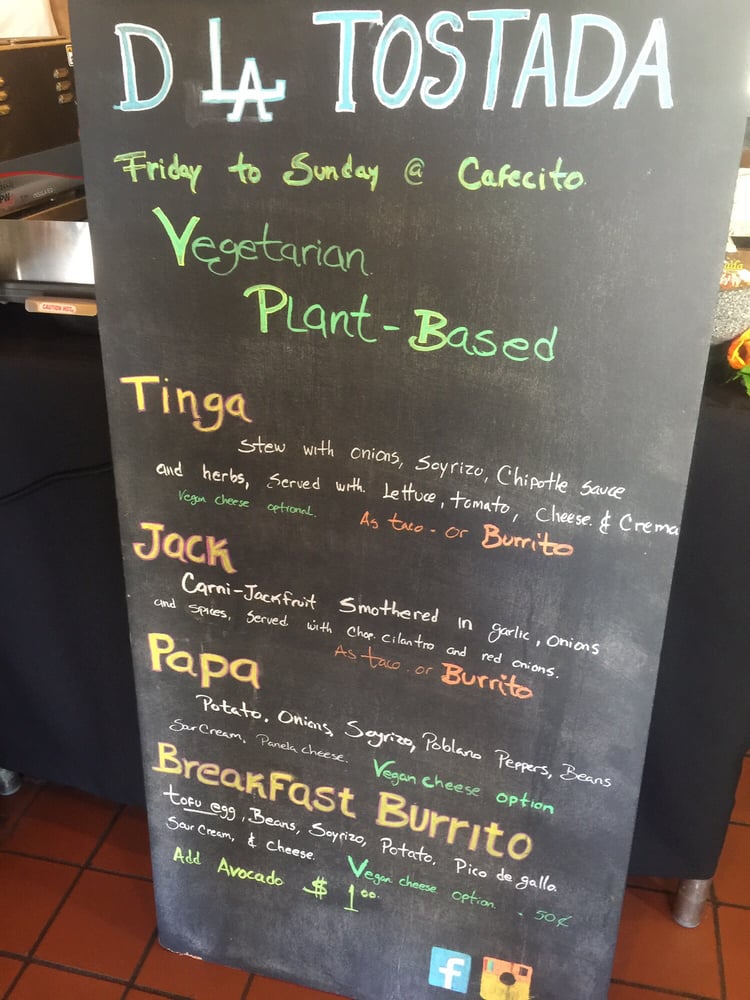 D LA TOSTADA
Friday to Sunday @ Cafecito
Vegetarian
Plant-Based
Tinga
Stew with onions, Soyrizo, Chipotle sauce
and herbs, Served with. Lettuce, tomato, Cheese & Crema
Vegan cheese optional.
As taco. or Burrito
Jack
Carni-Jackfruit Smothered in garlic, onions
and spices, Served with Chop. Cilantro and red onions.
As taco. or Burrito
Papa
Potato, Onions, Soyrizo, Poblano Peppers, Beans
Sour Cream, Panela cheese.
Vegan cheese option
Breakfast Burrito
tofu egg, Beans, Soyrizo, Potato, Pico de gallo.
Sour Cream, & Cheese.
Vegan cheese option. .50¢
Add Avocado $1.00
f
CAUTION HOT